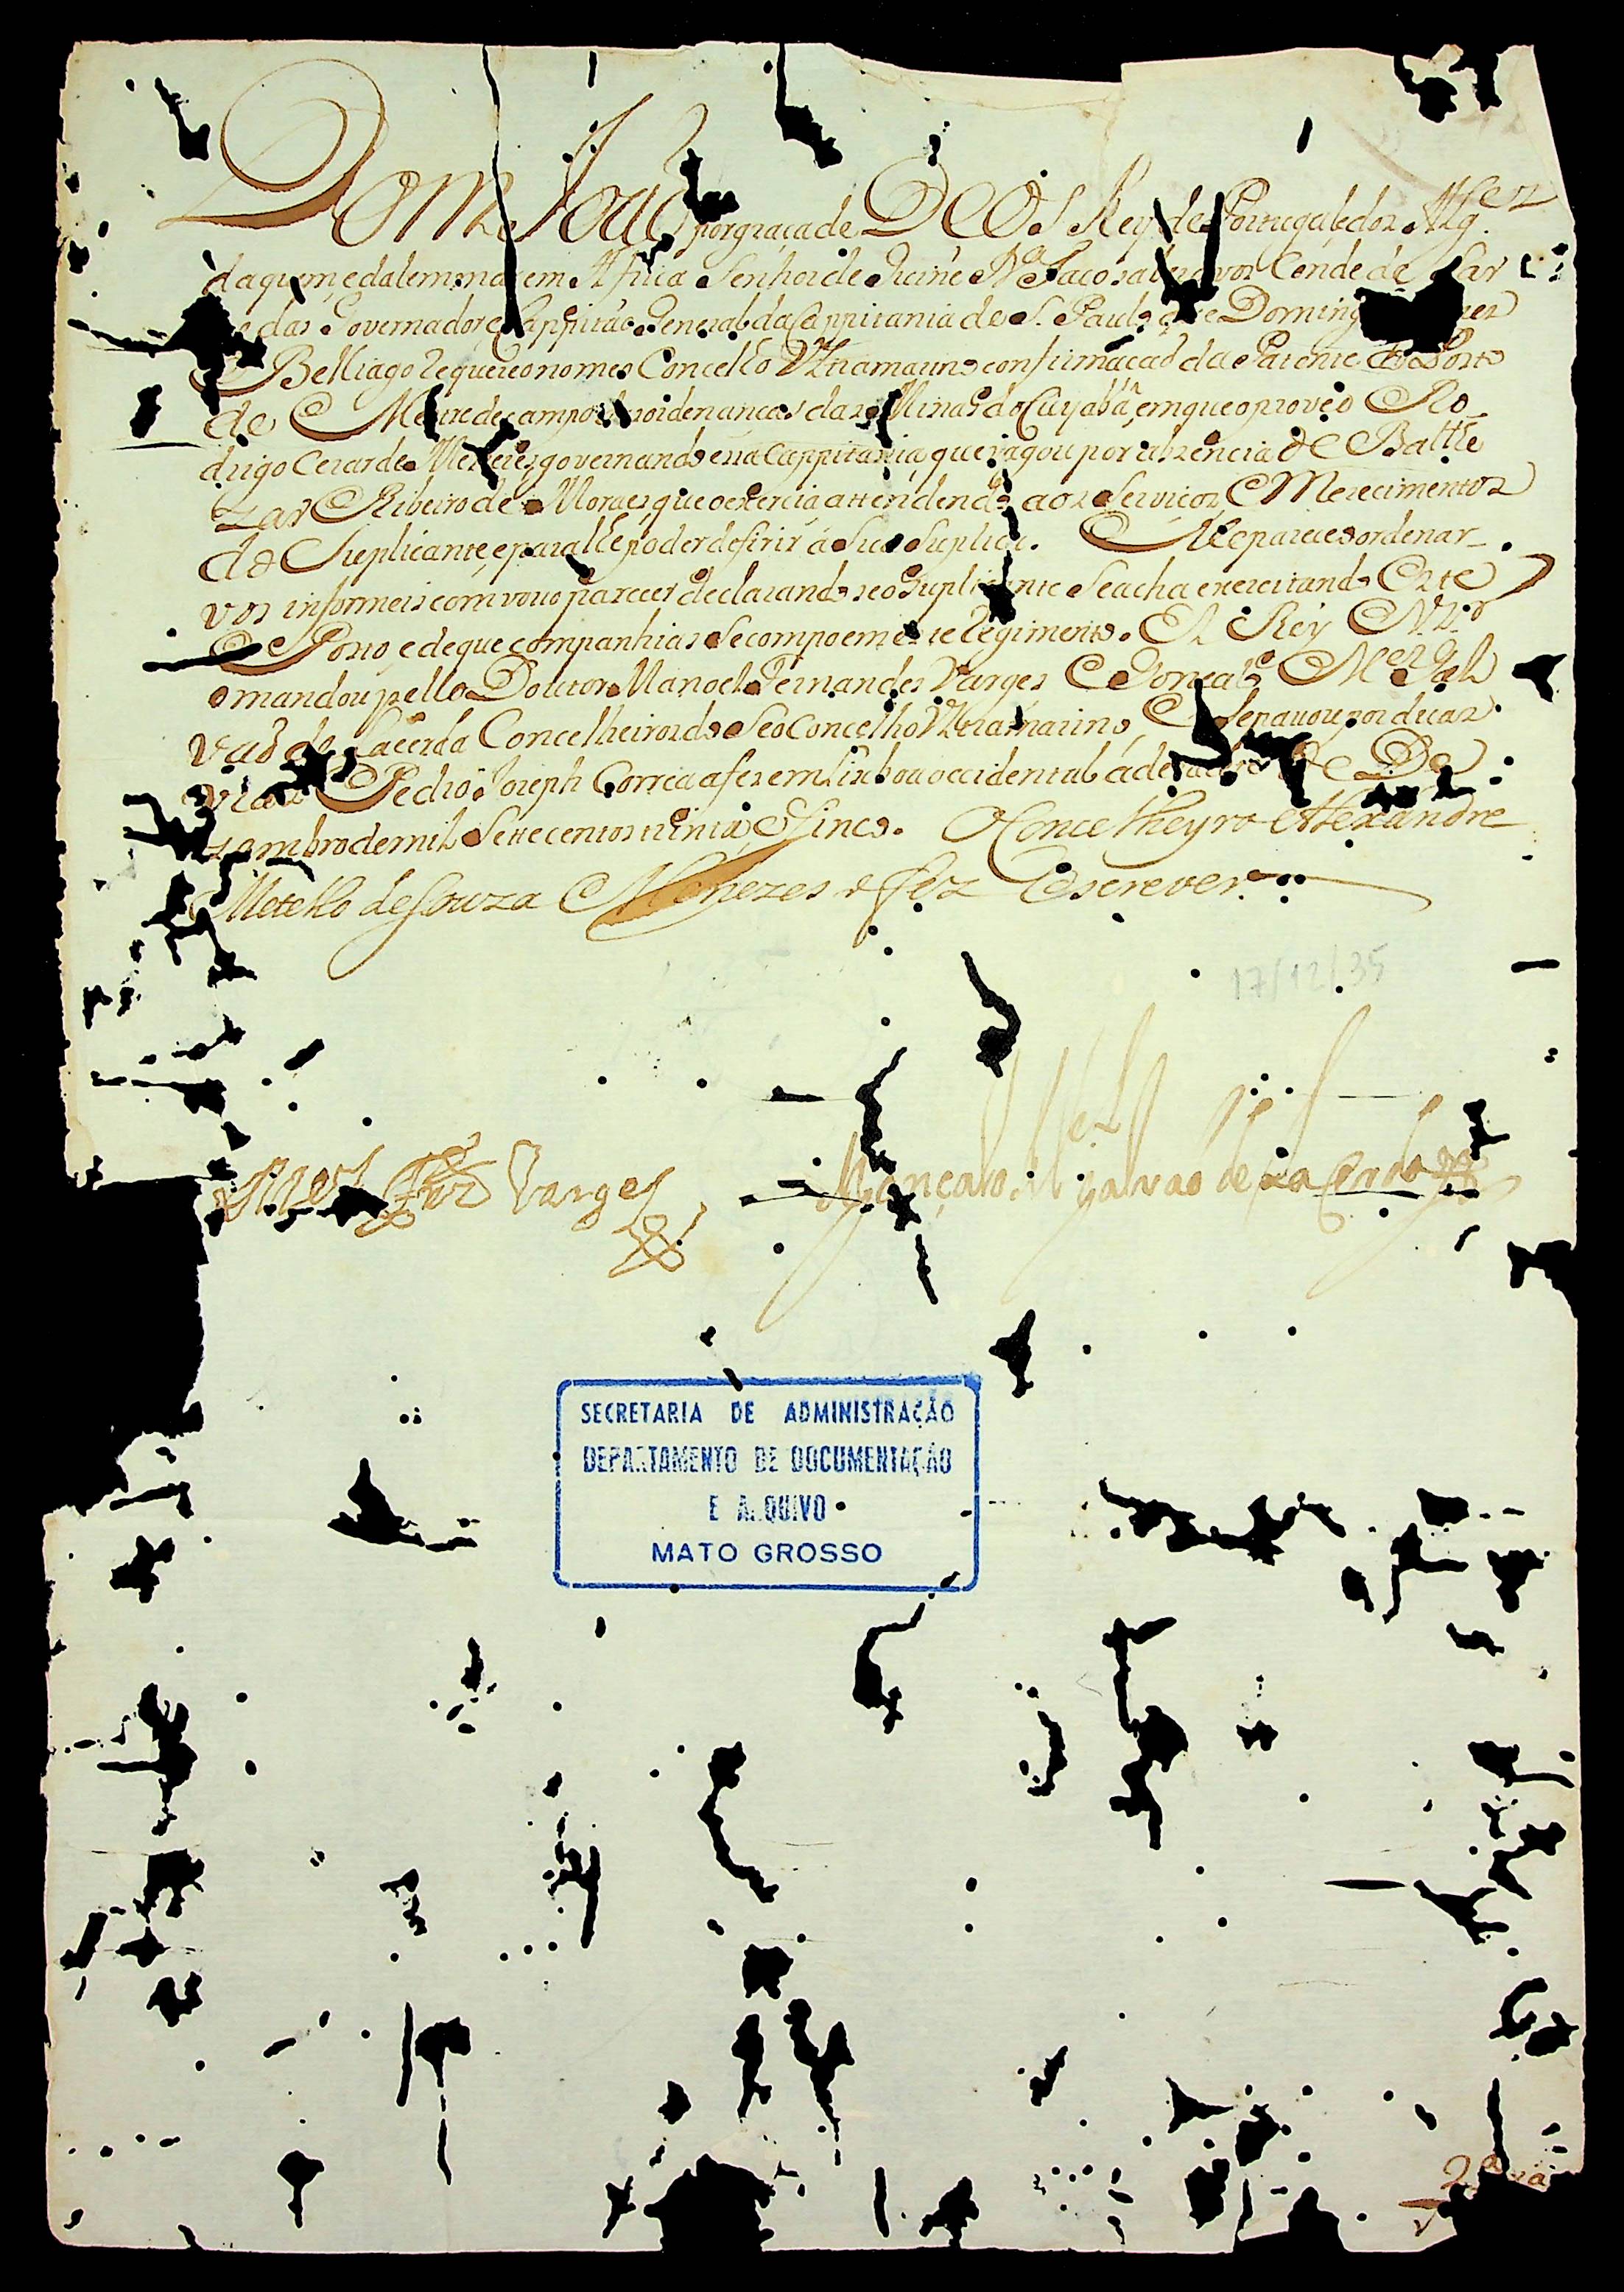 Dom João por graça de DEOS Rey de Portugal e dos Alg.es
daquem e dalem mar em Africa Senhor de Guiné &.ª Faço saber a vos Conde de Sar
zedas Governador e Cappitão General da Cappitania de S. Paulo que Domingos
Belliago requereo no meo Concelho Ultramarino confirmação da Patente do Posto
de Mestre de campo das ordenanças das Minas do Cuyabá, em que o proveo Ro-
drigo Cesar de Menezes governando essa Cappitania que vagou por abzencia de Balthe
zar Ribeiro de Moraes, que o exercia attendendo aos Serviços, e Merecimentos
do Suplicante, e para lhe poder deferir á Sua Suplica. Me pareceo ordenar-
vos informeis com vosso parecer declarando se o Suplicante Se acha exercitando Este
Posto, e de que companhias Se compoem este regimento. El Rey N. Sr.
o mandou pello Doutor Manoel Fernandes Varges e Gonçalo M.el Gal
vaõ de Lacerda Concelheiros do Seo Concelho Ultramarino, e Se passou por duas
vias Pedro Joseph Correa a fes em Lixboa occidental á de De
zembro de mil Sette centos trinta, e Sinco. O Concelheyro Alexandre
Metello de Souza Menezes o fez Escrever.
17/12/35
M.el Frz Varges
Gonçalo M.el Galvaõ de Lacerda
SECRETARIA DE ADMINISTRAÇÃO
DEPARTAMENTO DE DOCUMENTAÇÃO
E ARQUIVO
MATO GROSSO
2.ª via